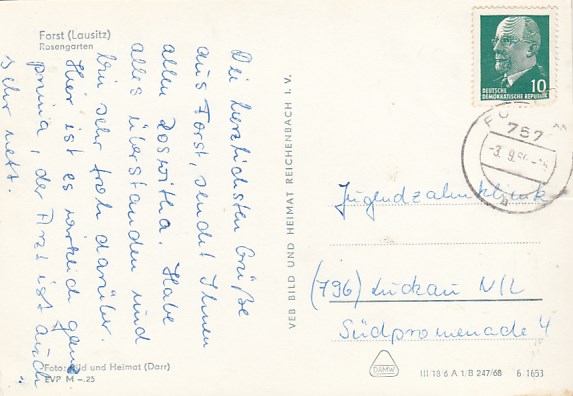 Forst (Lausitz)
Rosengarten
Die herzlichsten Grüße
aus Forst, sendet Ihnen
allen Roswitha. Habe
alles überstanden und
bin sehr froh darüber.
Hier ist es wirklich ganz
prima, der Arzt ist auch
sehr nett.
Foto: Bild und Heimat (Darr)
EVP M –.25
VEB BILD UND HEIMAT REICHENBACH I. V.
10
DEUTSCHE
DEMOKRATISCHE REPUBLIK
757
-3. 9.
Jugendzahnklinik
(796) Luckau N/L
Südpromenade 4
DAMW
III 18 6 A 1/B 247/68 6 1653